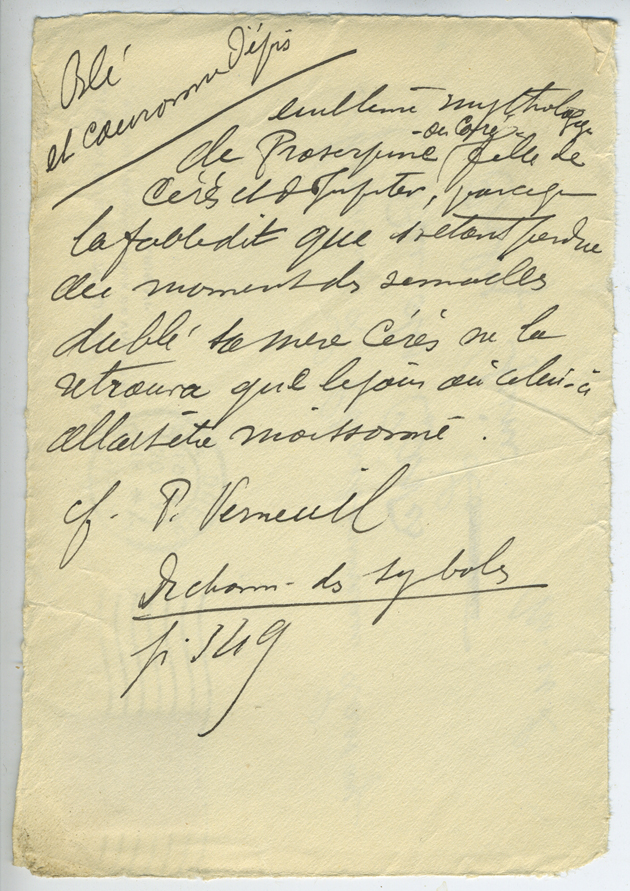 Blé
et couronne d'épis
emblème mythologique
de Proserpine - ou Coré - fille de
Cérès et de Jupiter, parceque
la fable dit que s'étant perdue
au moment des semailles
du blé sa mère Cérès ne la
retrouva que le jour où celui-ci
allait être moissonné.
cf. P. Verneuil
Dictionn- des symboles
p. 349